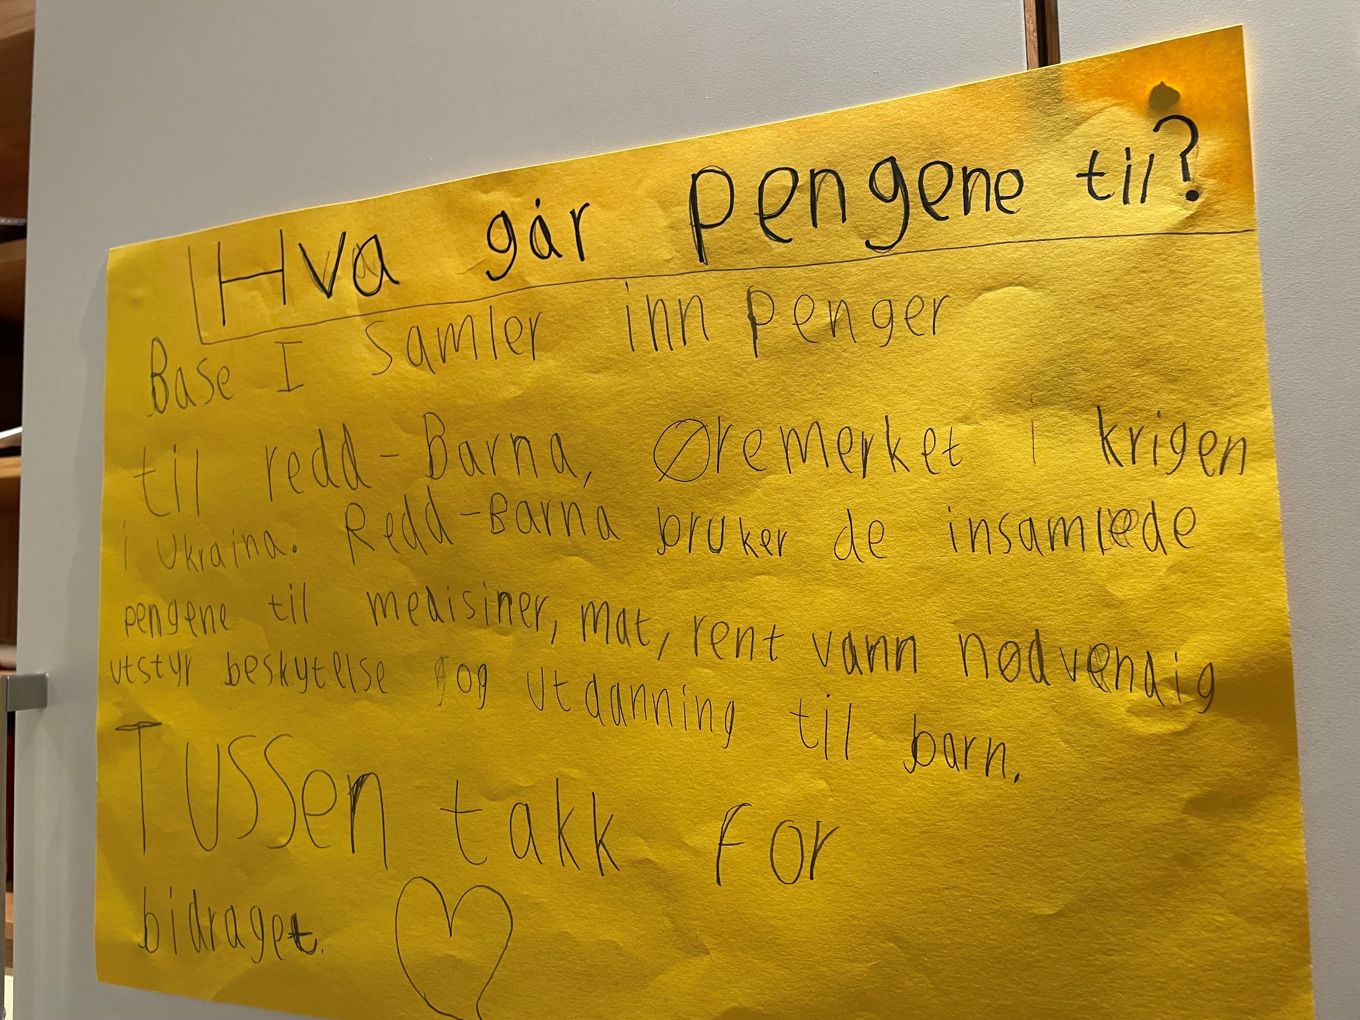 Hva går pengene til?
Base I samler inn penger
til redd-Barna, Øremerket i krigen
i Ukraina. Redd-Barna bruker de insamlede
pengene til medisiner, mat, rent vann nødvendig
utstyr beskytelse og utdanning til barn.
Tussen takk for
bidraget.